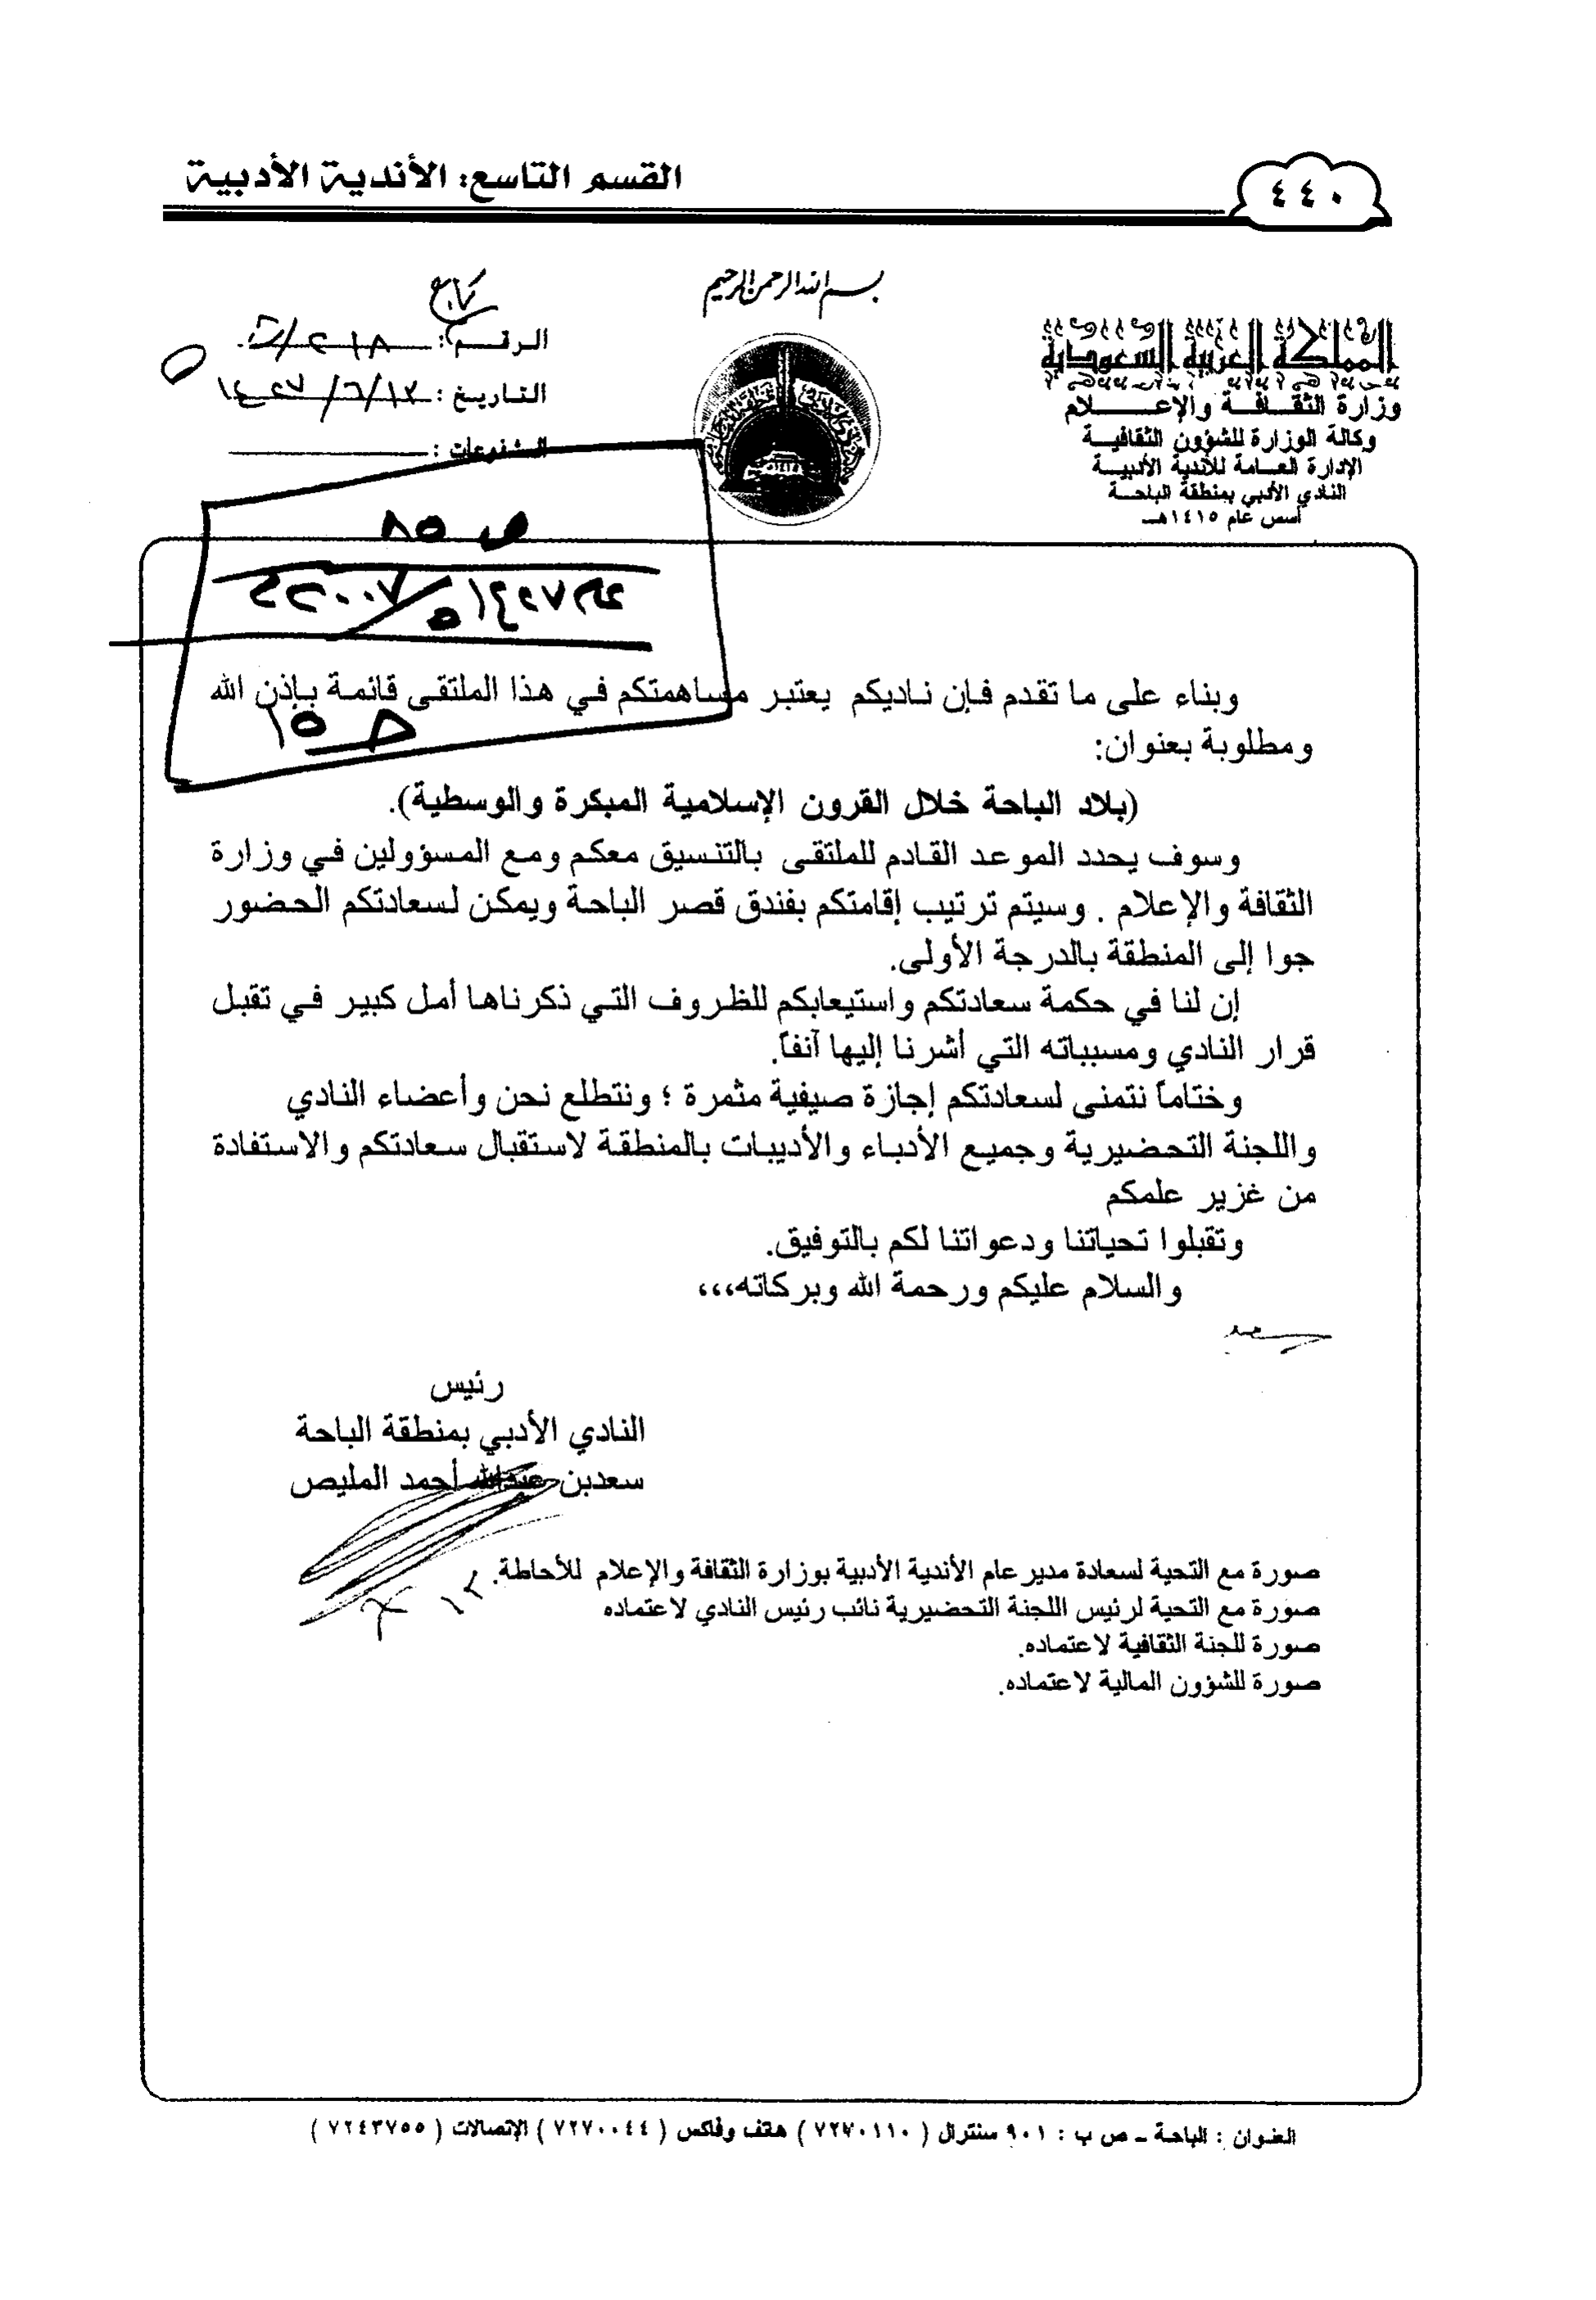 القسم التاسع: الأندية الأدبية
٤٤٠
بسم الله الرحمن الرحيم
المملكة العربية السعودية
وزارة الثقافة والإعلام
وكالة الوزارة للشؤون الثقافية
الإدارة العامة للأندية الأدبية
النادي الأدبي بمنطقة الباحة
أسس عام ١٤١٥هـ
تابع
الرقم:
التاريخ: ١٤٢٧/٦/١٢
المشفوعات:
ص ٨٥
وبناء على ما تقدم فإن ناديكم يعتبر مساهمتكم في هذا الملتقى قائمة بإذن الله
ومطلوبة بعنوان:
(بلاد الباحة خلال القرون الإسلامية المبكرة والوسطية).
وسوف يحدد الموعد القادم للملتقى بالتنسيق معكم ومع المسؤولين في وزارة
الثقافة والإعلام . وسيتم ترتيب إقامتكم بفندق قصر الباحة ويمكن لسعادتكم الحضور
جوا إلى المنطقة بالدرجة الأولى.
إن لنا في حكمة سعادتكم واستيعابكم للظروف التي ذكرناها أمل كبير في تقبل
قرار النادي ومسبباته التي أشرنا إليها آنفاً.
وختاماً نتمنى لسعادتكم إجازة صيفية مثمرة ؛ ونتطلع نحن وأعضاء النادي
واللجنة التحضيرية وجميع الأدباء والأديبات بالمنطقة لاستقبال سعادتكم والاستفادة
من غزير علمكم
وتقبلوا تحياتنا ودعواتنا لكم بالتوفيق.
والسلام عليكم ورحمة الله وبركاته،،،
رئيس
النادي الأدبي بمنطقة الباحة
سعدبن عبدالله أحمد المليص
صورة مع التحية لسعادة مدير عام الأندية الأدبية بوزارة الثقافة والإعلام للأحاطة.
صورة مع التحية لرئيس اللجنة التحضيرية نائب رئيس النادي لاعتماده
صورة للجنة الثقافية لاعتماده.
صورة للشؤون المالية لاعتماده.
العنوان : الباحة ـ ص ب : ٩٠١ سنترال ( ٧٢٧٠١١٠ ) هاتف وفاكس ( ٧٢٧٠٠٤٤ ) الإتصالات ( ٧٢٤٣٧٥٥ )